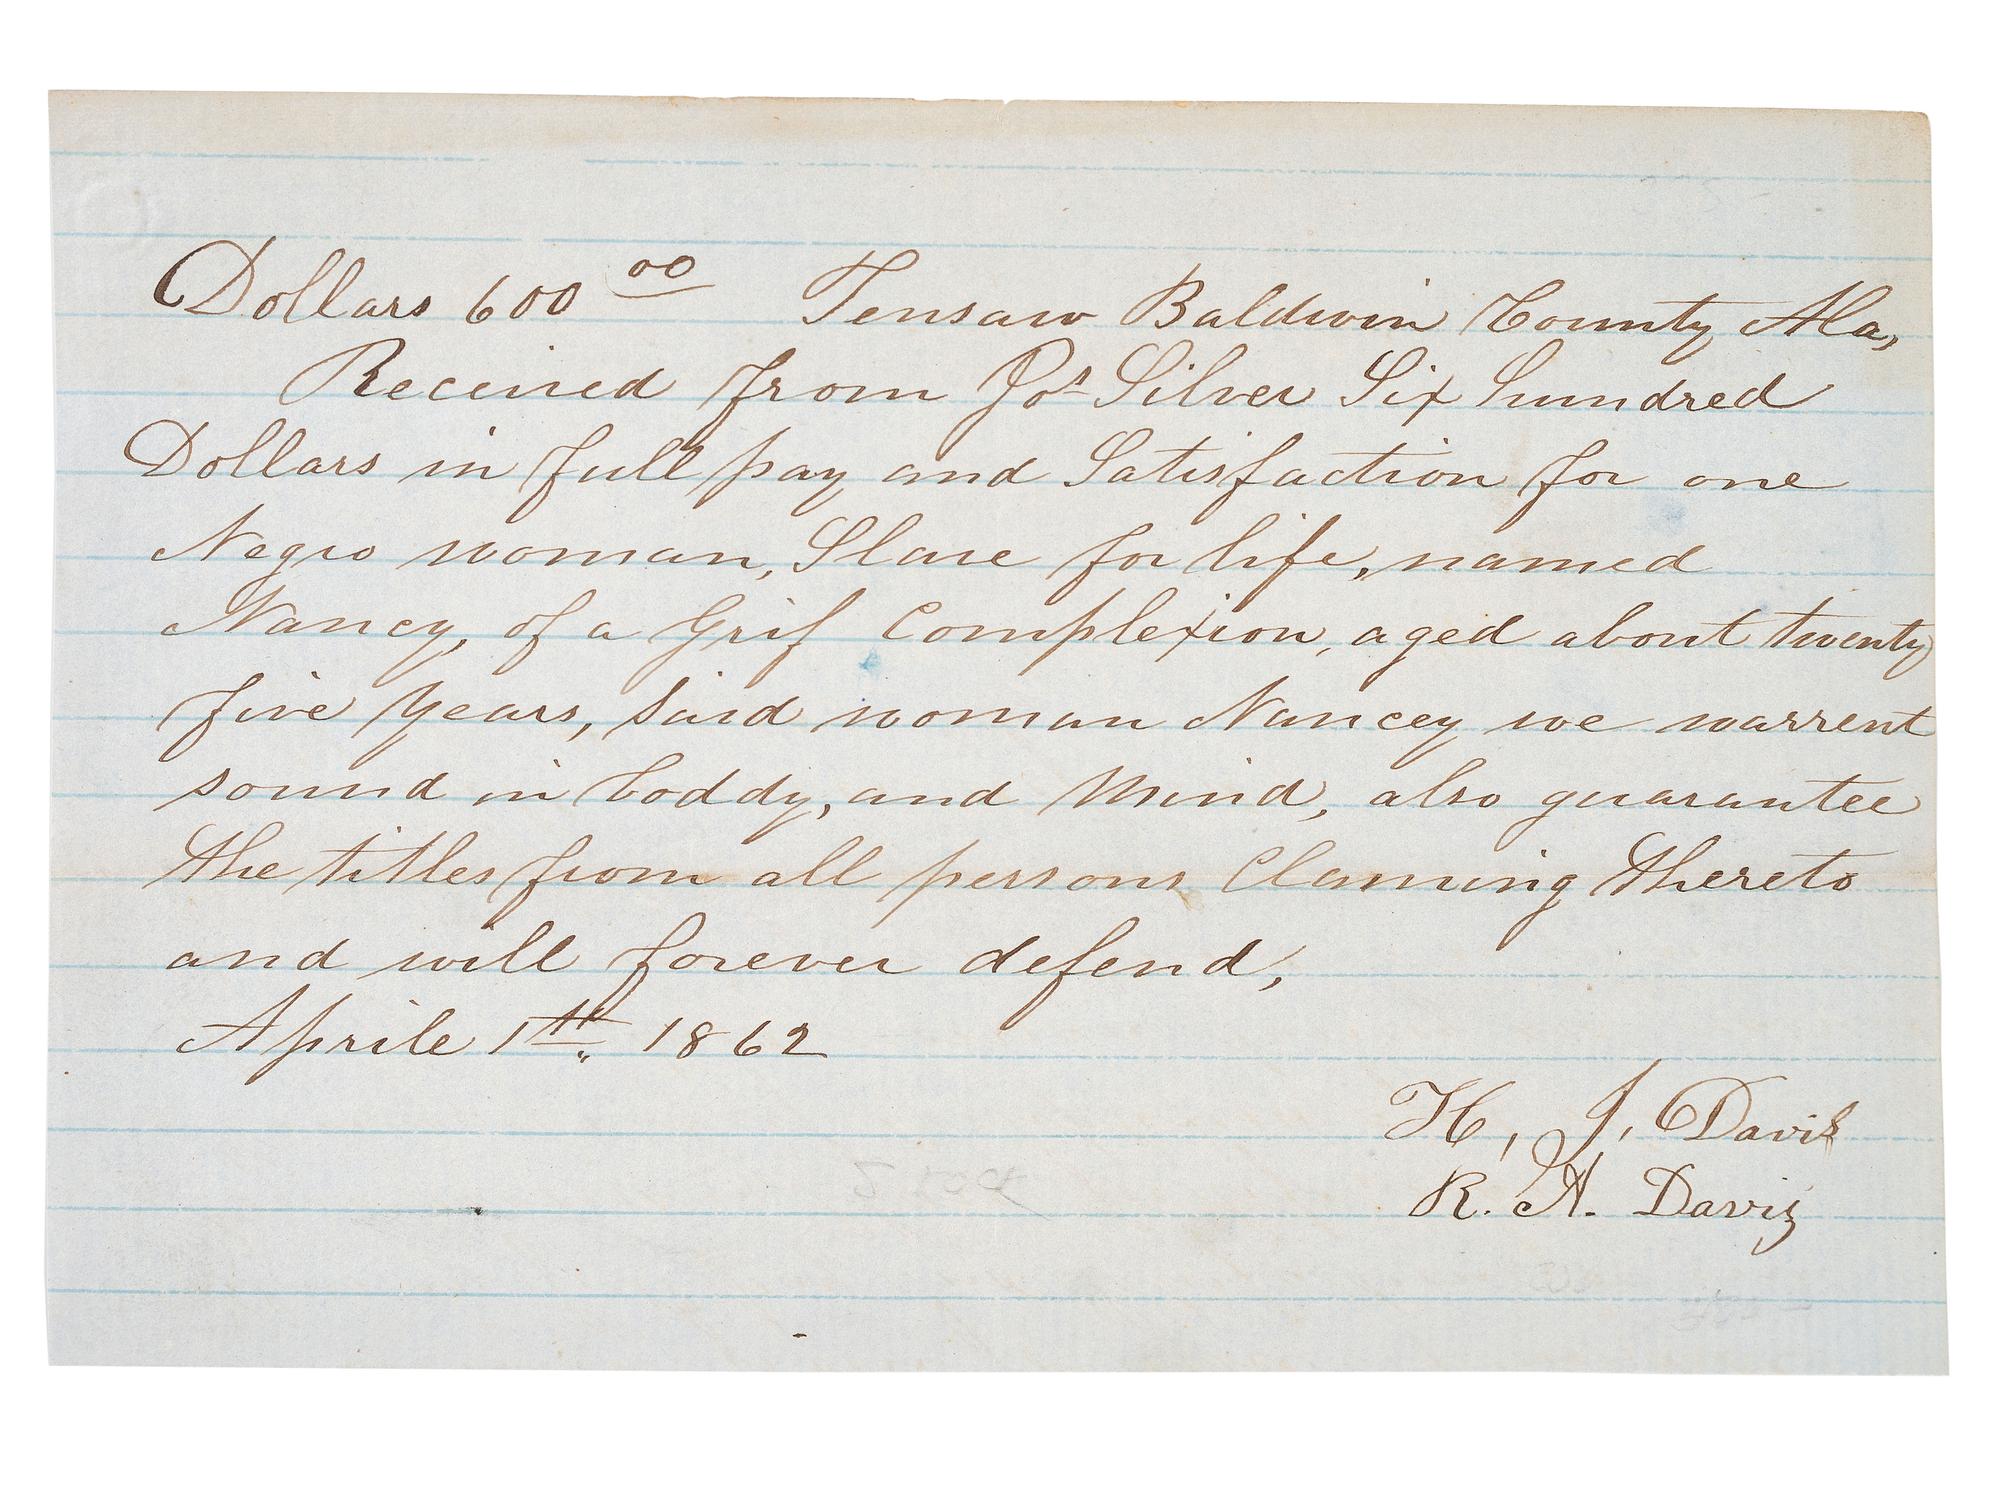 Dollars 600 00 Tensaw Baldwin County Ala,
Received from Jos Silver Six hundred
Dollars in full pay and Satisfaction for one
Negro woman, Slave for life, named
Nancy, of a Grif Complexion, aged about twenty
five years, Said woman Nancey we warrent
sound in boddy, and Mind, also guarantee
the titles from all persons Claming thereto
and will forever defend,
Aprile 1th 1862
H, J, Davis
R. A. Davis